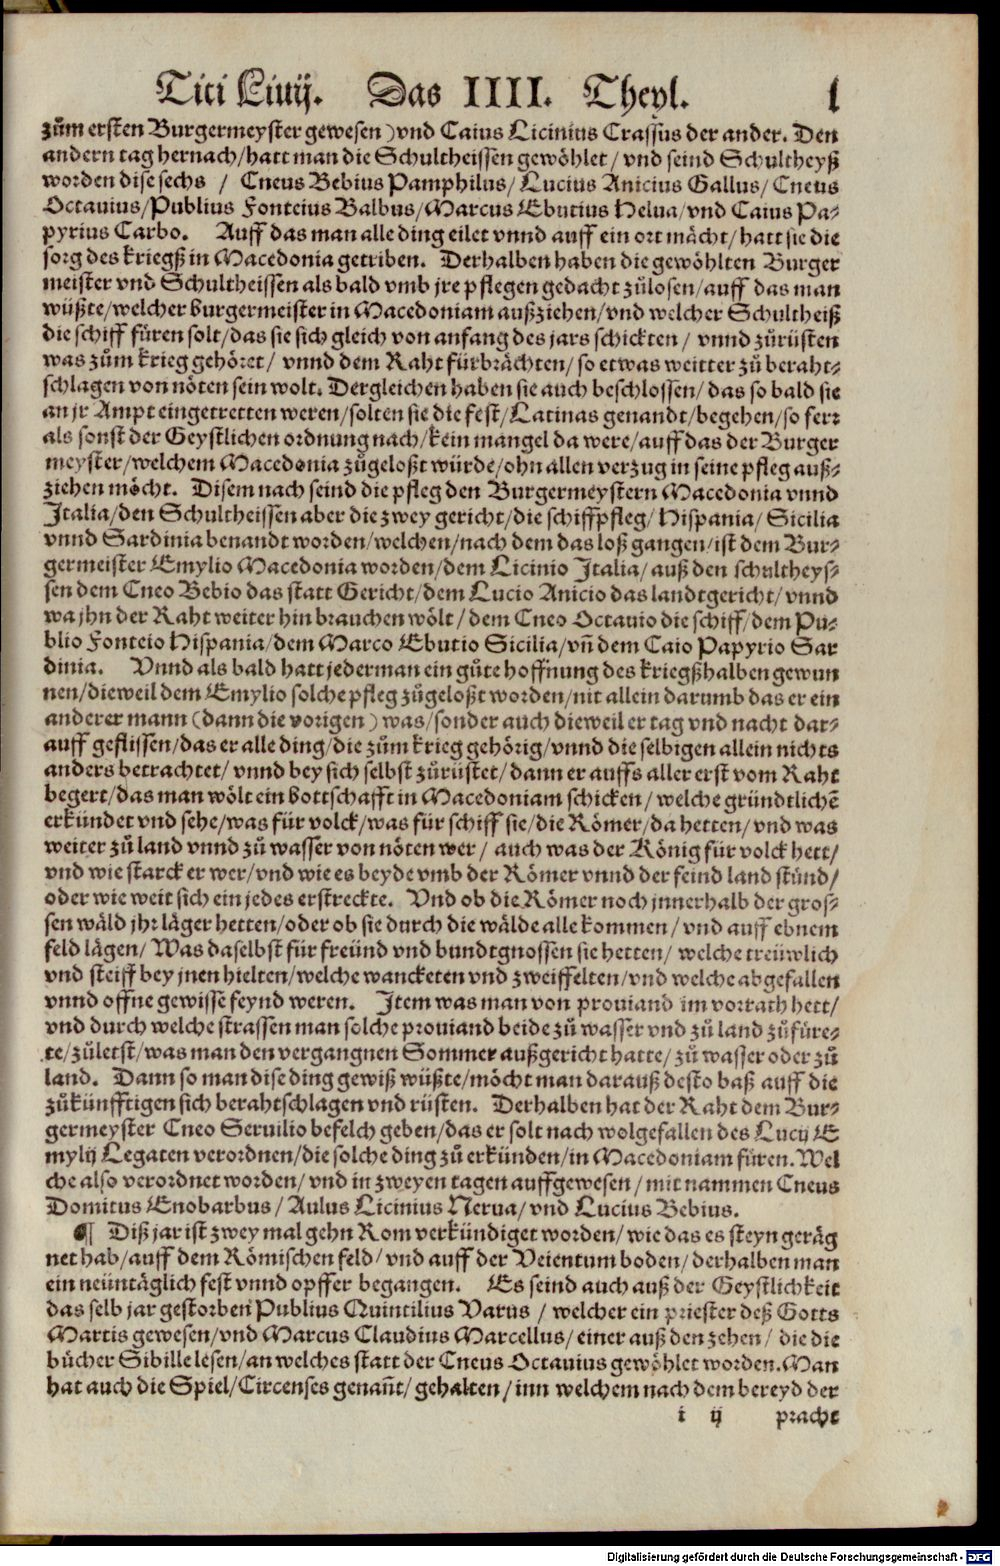 Titi Liuij. Das IIII. Theyl. l
zům ersten Burgermeyster gewesen) vnd Caius Licinius Crassus der ander. Den
andern tag hernach/hatt man die Schultheissen gewöhlet/ vnd seind Schultheyß
worden dise sechs / Cneus Bebius Pamphilus/ Lucius Anicius Gallus/ Cneus
Octauius/Publius Fonteius Balbus/Marcus Ebutius Helua/vnd Caius Pa-
pyrius Carbo. Auff das man alle ding eilet vnnd auff ein ort mächt/ hatt sie die
sorg des kriegß in Macedonia getriben. Derhalben haben die gewöhlten Burger
meister vnd Schultheissen als bald vmb jre pflegen gedacht zůlosen/auff das man
wüßte/welcher burgermeister in Macedoniam außziehen/vnd welcher Schultheiß
die schiff füren solt/das sie sich gleich von anfang des jars schickten / vnnd zůrüsten
was zům krieg gehöret/ vnnd dem Raht fürbrächten/ so etwas weitter zů beraht-
schlagen von nöten sein wolt. Dergleichen haben sie auch beschlossen/ das so bald sie
an jr Ampt eingetretten weren/solten sie die fest/Latinas genandt/begehen/so ferr
als sonst der Geystlichen ordnung nach/kein mangel da were/auff das der Burger
meyster/welchem Macedonia zůgeloßt würde/ohn allen verzug in seine pfleg auß-
ziehen möcht. Disem nach seind die pfleg den Burgermeystern Macedonia vnnd
Italia/den Schultheissen aber die zwey gericht/die schiffpfleg/ Hispania/ Sicilia
vnnd Sardinia benandt worden/welchen/nach dem das loß gangen/ist dem Bur-
germeister Emylio Macedonia worden/dem Licinio Italia/ auß den schultheys-
sen dem Cneo Bebio das statt Gericht/dem Lucio Anicio das landtgericht/vnnd
wa jhn der Raht weiter hin brauchen wölt/ dem Cneo Octauio die schiff/dem Pu-
blio Fonteio Hispania/dem Marco Ebutio Sicilia/vñ dem Caio Papyrio Sar
dinia. Vnnd als bald hatt jederman ein gůte hoffnung des kriegßhalben gewun
nen/dieweil dem Emylio solche pfleg zůgeloßt worden/nit allein darumb das er ein
anderer mann (dann die vorigen) was/sonder auch dieweil er tag vnd nacht dar-
auff geflissen/das er alle ding/die zům krieg gehörig/vnnd die selbigen allein nichts
anders betrachtet/ vnnd bey sich selbst zůrüstet/dann er auffs aller erst vom Raht
begert/das man wölt ein bottschafft in Macedoniam schicken/ welche gründtlichē
erkündet vnd sehe/was für volck/was für schiff sie/die Römer/da hetten/ vnd was
weiter zů land vnnd zů wasser von nöten wer/ auch was der König für volck hett/
vnd wie starck er wer/vnd wie es beyde vmb der Römer vnnd der feind land stünd/
oder wie weit sich ein jedes erstreckte. Vnd ob die Römer noch jnnerhalb der gros-
sen wäld jhr läger hetten/oder ob sie durch die wälde alle kommen/ vnd auff ebnem
feld lägen/ Was daselbst für freünd vnd bundtgnossen sie hetten/ welche treüwlich
vnd steiff bey jnen hielten/welche wancketen vnd zweiffelten/vnd welche abgefallen
vnnd offne gewisse feynd weren. Item was man von prouiand im vorrath hett/
vnd durch welche strassen man solche prouiand beide zů wasser vnd zů land zůfüre-
te/zůletst/was man den vergangnen Sommer außgericht hatte/zů wasser oder zů
land. Dann so man dise ding gewiß wüßte/möcht man darauß desto baß auff die
zůkünfftigen sich berahtschlagen vnd rüsten. Derhalben hat der Raht dem Bur-
germeyster Cneo Seruilio befelch geben/das er solt nach wolgefallen des Lucij E
mylij Legaten verordnen/die solche ding zů erkünden/in Macedoniam füren. Wel
che also verordnet worden/ vnd in zweyen tagen auffgewesen/ mit nammen Cneus
Domitus Enobarbus/ Aulus Licinius Nerua/ vnd Lucius Bebius.
¶ Diß jar ist zwey mal gehn Rom verkündiget worden/ wie das es steyn geräg
net hab/auff dem Römischen feld/ vnd auff der Veientum boden/ derhalben man
ein neüntäglich fest vnnd opffer begangen. Es seind auch auß der Geystlichkeit
das selb jar gestorben Publius Quintilius Varus / welcher ein priester deß Gotts
Martis gewesen/vnd Marcus Claudius Marcellus/ einer auß den zehen/ die die
bücher Sibille lesen/an welches statt der Cneus Octauius gewöhlet worden. Man
hat auch die Spiel/Circenses genañt/ gehalten/ inn welchem nach dem bereyd der
i ij pracht
Digitalisierung gefördert durch die Deutsche Forschungsgemeinschaft - DFG